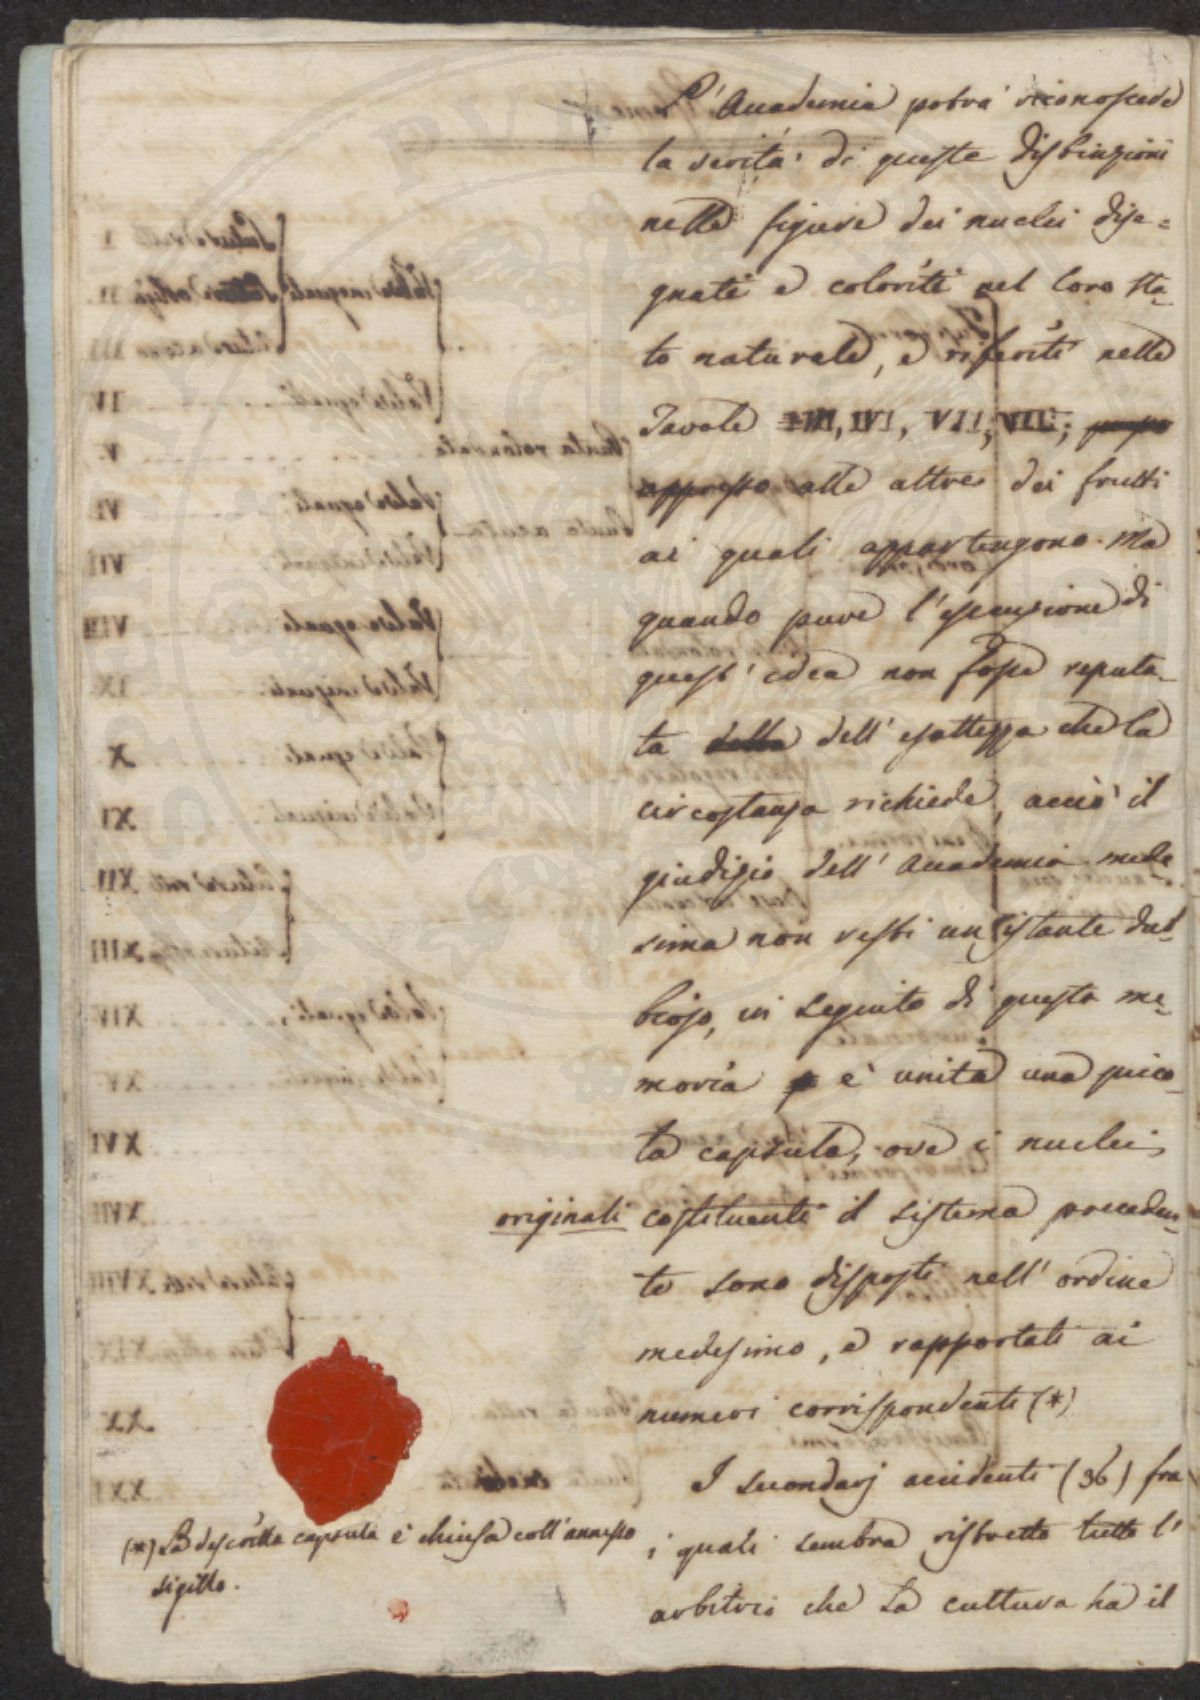 L'Accademia potrà riconoscere
la verità di queste distinzioni
nelle figure dei nuclei dise=
gnati e coloriti nel loro sta-
to naturale, e riferiti nelle
Tavole IVI, VII, VIII;
appresso alle altre dei frutti
ai quali appartengono. Ma
quando pure l'espressione di
quest'idea non fosse reputa-
ta della dell'esattezza che la
circostanza richiede, acciò il
giudizio dell'Accademia mede
sima non resti un istante dub-
bioso, in seguito di questa me-
moria è unita una picco-
la capsula, ove i nuclei,
originali costituenti il sistema preceden-
te sono disposti nell'ordine
medesimo, e rapportati ai
numeri corrispondenti (*)
I secondarj accidenti (36) fra
i quali sembra ristretto tutto l'
arbitrio che la cultura ha il
(*) La descritta capsula è chiusa coll'annesso
sigillo.